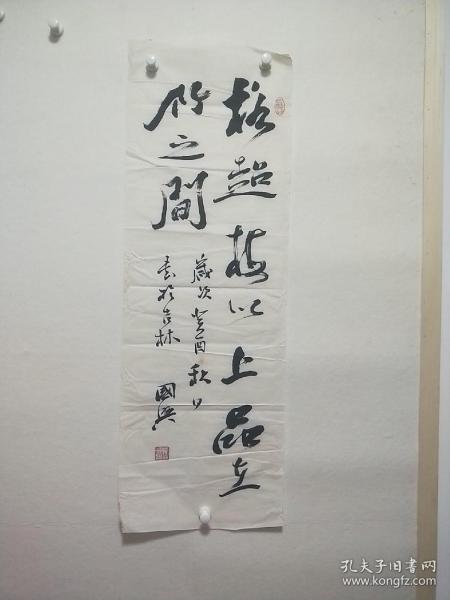 格超梅以上品在
竹之間
歲次癸酉秋月
書於吉林
國興
孔夫子旧书网
www.kongfz.com